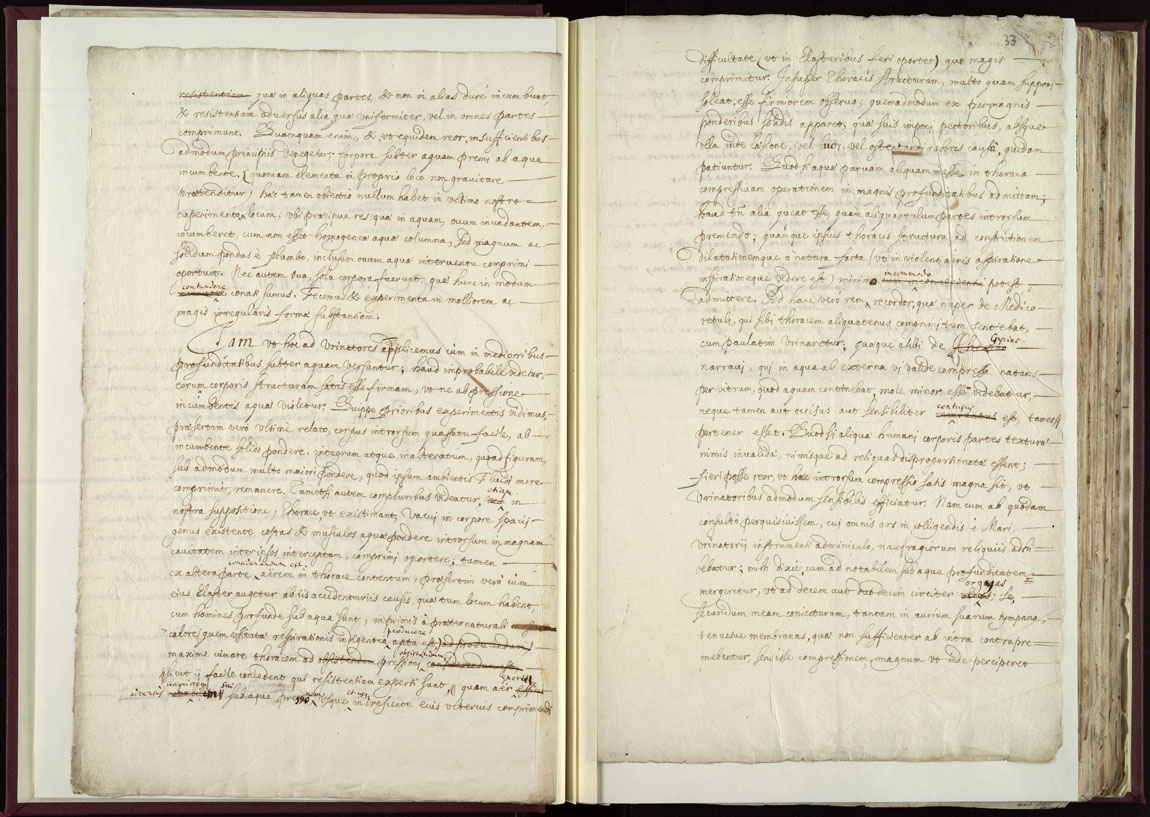 resistentiam quæ in aliquas partes, & non in alias durè incumbunt,
& resistentiam adversus alia quæ vniformiter, vel in omnes partes
comprimunt. Quanquam enim, & vt equidem reor, insufficientibus
admodum principiis vrgegetur; Corpora subter aquam premi ab aqua
incumbente, quoniam elementa in proprio loco non gravitare
prætenditur; hæc tamen obiectio nullum habet in vltimo nostro
experimento locum; vbi præcipua res quæ in aquam, ovum inundantem,
incumberet, cum non esset homogenea aquæ columna, sed magnum ac
solidum pondus è plumbo, inclusum ovum aquæ interventu comprimi
oportuit. Nec autem ova sola corpora fuerunt, quæ hunc in modum
contundere conati sumus. Fecimus & experimenta in molliorem ac
magis irregularis formæ substantiam.
Jam vt hoc ad Vrinatores applicemus cùm in mediocribus
profunditatibus subter aquam versantur; haud improbabile videtur,
eorum corporis structuram satis esse firmam, vt ne ab pressione
incumbentis aquæ violetur. Quippe prioribus experimentis vidimus,
præsertim verò vltimè relato, corpus introrsum quassatu facile, ab
incumbente solido pondere, integrum atque inalteratum, quoad figuram,
sub admodum multo maiori pondere, quod ipsum ambientis Fluidi more
comprimit, remanere. Tametsi autem compluribus videatur, etiam in
nostra suppositione, Thorace, vt existimant, Vacui in corpore spacii
genus existente costas & musculos aquæ pondere introrsum in magnam
cavitatem inter ipsos interceptam, comprimi oportere; tamen
considerandum est,
ex altera parte aërem in thorace contentum, præsertim verò cum
eius Elaster augetur ab iis accidentariis causis, quæ tum locum habent,
cum homines profunde sub aqua sunt, inprimis à præternaturali
calore, quem efficata respirationis indigentia producere apta est, ad producendum
maximè iuvare thoracem ad obsistendum pressioni
sicut ij facile concedent qui resistentiam experti sunt, quam aër
sub aqua vsque increscente eius vlteriùs comprimendi
33
difficultate (vt in Elasteribus fieri oportet) quo magis
comprimitur. Insuper Thoracis structuram, multo quam supponi
soleat, esse firmiorem observo; quemadmodum ex permagnis
ponderibus solidis apparet, quæ suis imponi pectoribus, absque
vlla inde læsione, vel lucri, vel ostentandi roboris causa, quidam
patiuntur. Quod si aqua parvam aliquam in esse in thorace
compressivam operationem in magnis profunditatibus admittam,
haud tamen alia queat esse, quam aliquantulum partes introrsum
premendo; quamque ipsius thoracis structura ad constrictionem
dilatationemque à natura facta (vt in violenti aeris aspiratione
inspirationeque videre est) minimo incommodo potest
admittere. Sed hanc verò rem, recordor, quæ nuper de Medico
retuli, qui sibi thoracem aliquatenus comprimi tum sentiebat,
cum paulatim vrinaretur; quæque alibi de Gyrino
narravi, qui in aqua ab externa vi valide compressa natans
per vitrum, quod aquam continebat, mole minor esse videbatur,
neque tamen aut occisus aut sensibiliter contusus est, tametsi
pertener esset. Quod si aliquæ humani corporis partes texturæ
nimis invalidæ, nimisque ad reliquas disproportionatæ essent;
fieri posse reor, vt hæc introrsum compressio satis magna sit, vt
Vrinatoribus admodum sensibilis efficiatur. Nam cum ab quodam
consultò perquisivissem, cui omnis ars in colligendis è Mari,
vrinatorii instrumenti adminiculo, naufragiorum reliquiis adhi=
bebatur; mihi dixit, cum ad notabilem sub aqua profunditatem
mergeretur, vt ad decem aut duodecim circiter orgyas; se,
secundum meam coniecturam, tantam in aurium suarum tympana,
tenuesve membranas, quæ non sufficienter ab vltra contrapre=
mebantur, sensisse compressionem, magnum vt inde perciperet